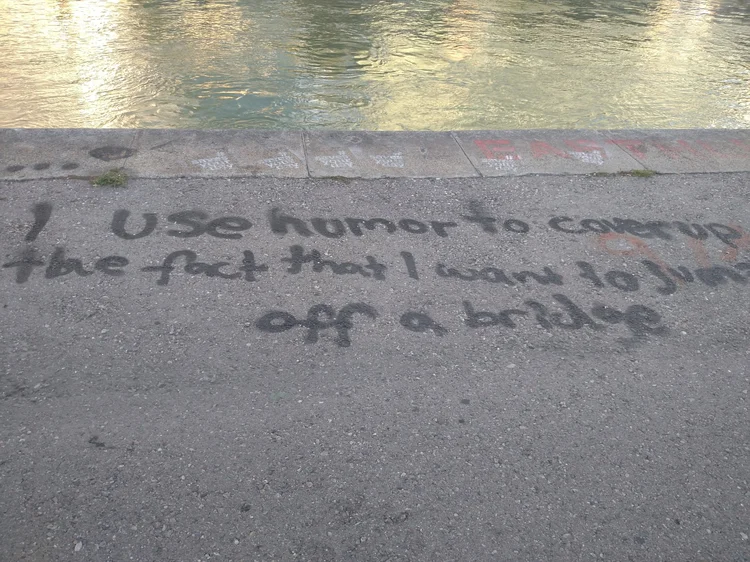 I use humor to cover up
the fact that I want to jump
off a bridge